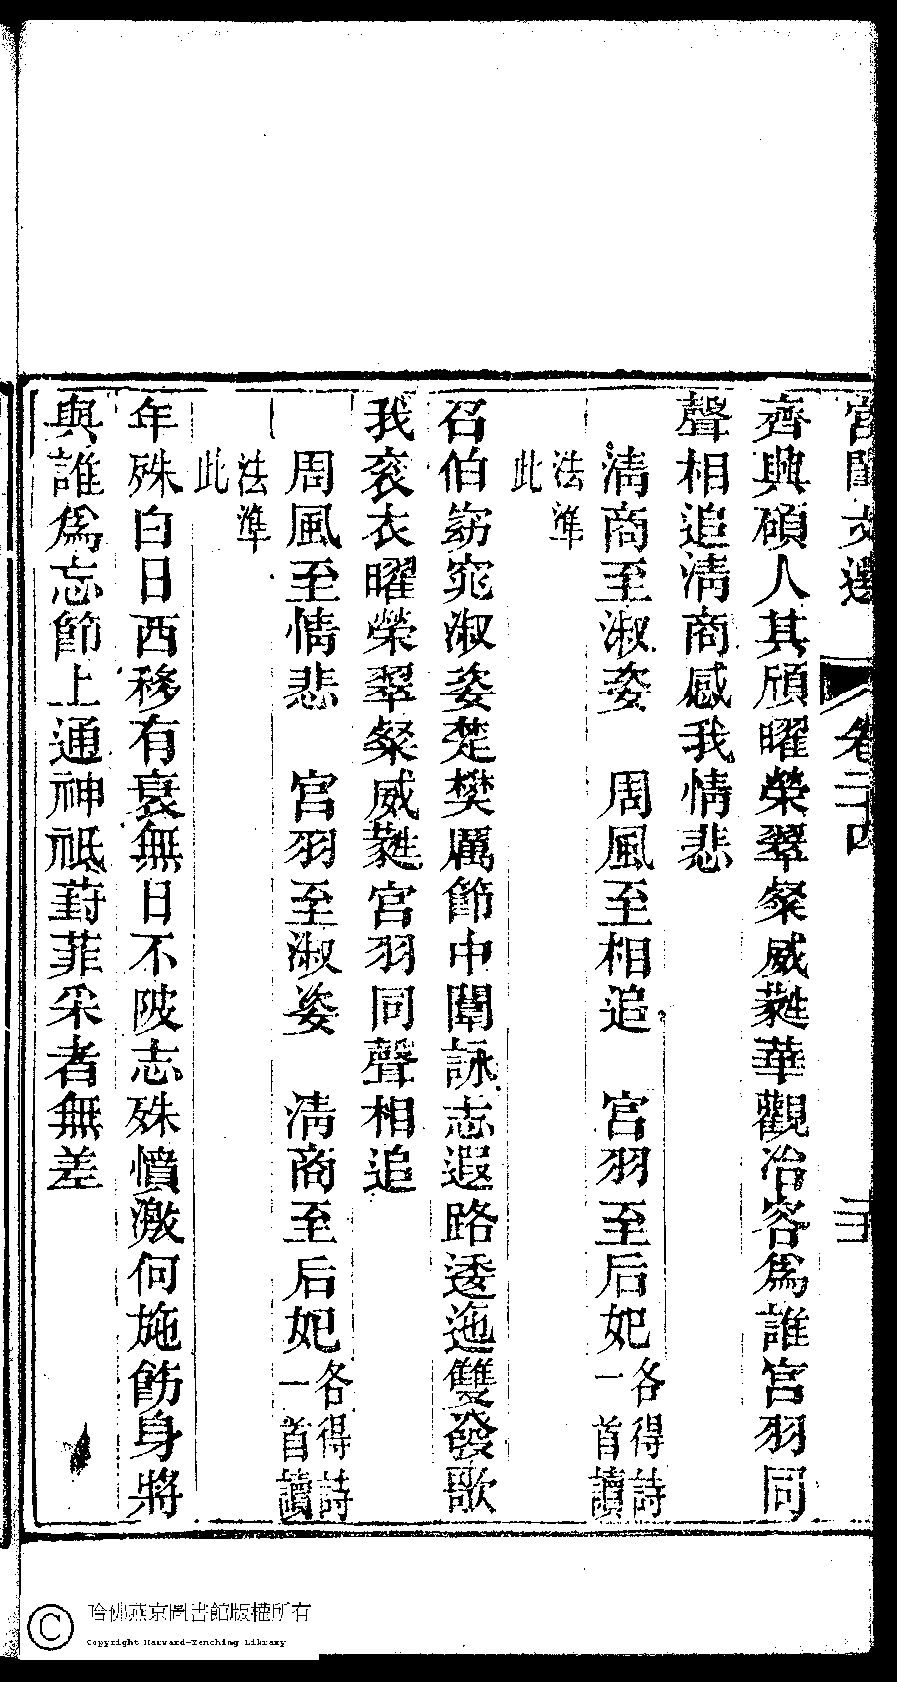 宮閨文選 卷二十四 二十
齊興碩人其頎曜榮翠粲威蕤華觀冶容爲誰宮羽同
聲相追清商感我情悲
清商至淑姿 周風至相追 宮羽至后妃各得詩一首讀
法準此
召伯窈窕淑姿楚樊厲節中闈詠志遐路逶迤雙發歌
我袞衣曜榮翠粲威蕤宮羽同聲相追
周風至情悲 宮羽至淑姿 清商至后妃各得詩一首讀
法準此
年殊白日西移有衰無日不陂志殊憤激何施飭身將
與誰爲忘節上通神祗葑菲采者無差
哈佛燕京圖書館版權所有
Copyright Harvard-Yenching Library